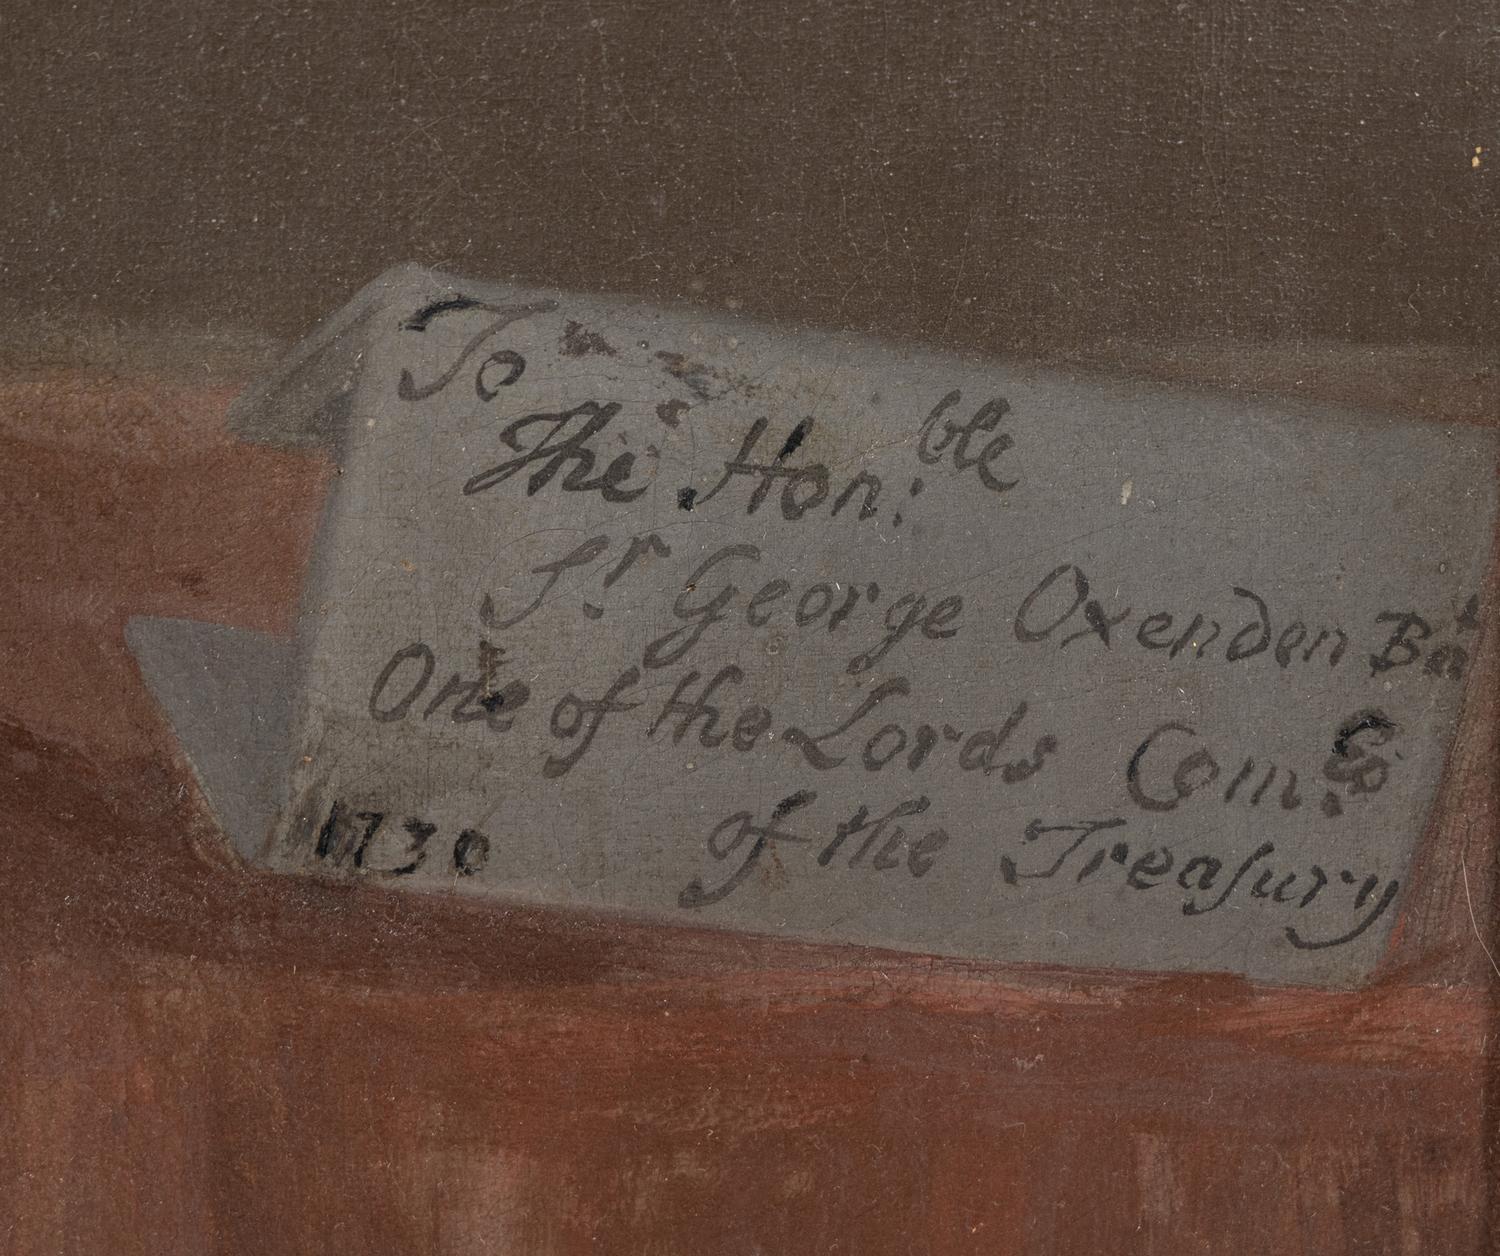 To
The Hon:ble
Sr. George Oxenden Bat
One of the Lords Com:
of the Treaſury
1730